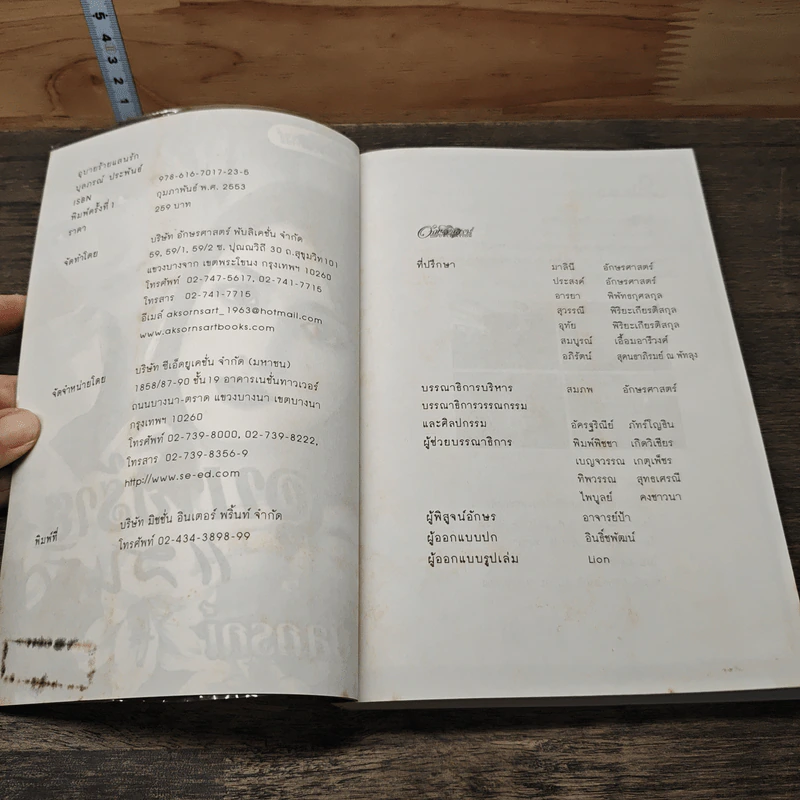 5
4
3
2
1
อุบายร้ายแสนรัก
บุลภรณ์ ประพันธ์
ISBN 978-616-7017-23-5
พิมพ์ครั้งที่ 1 กุมภาพันธ์ พ.ศ. 2553
ราคา 259 บาท
จัดทำโดย บริษัท อักษรศาสตร์ พับลิเคชั่น จำกัด
59, 59/1, 59/2 ซ. ปุณณวิถี 30 ถ.สุขุมวิท101
แขวงบางจาก เขตพระโขนง กรุงเทพฯ 10260
โทรศัพท์ 02-747-5617, 02-741-7715
โทรสาร 02-741-7715
อีเมล์ aksornsart_1963@hotmail.com
www.aksornsartbooks.com
จัดจำหน่ายโดย บริษัท ซีเอ็ดยูเคชั่น จำกัด (มหาชน)
1858/87-90 ชั้น19 อาคารเนชั่นทาวเวอร์
ถนนบางนา-ตราด แขวงบางนา เขตบางนา
กรุงเทพฯ 10260
โทรศัพท์ 02-739-8000, 02-739-8222,
โทรสาร 02-739-8356-9
http://www.se-ed.com
พิมพ์ที่ บริษัท มิชชั่น อินเตอร์ พริ้นท์ จำกัด
โทรศัพท์ 02-434-3898-99
ที่ปรึกษา มาลินี อักษรศาสตร์
ประสงค์ อักษรศาสตร์
อารยา พิพัทธกุศลกุล
สุวรรณี พิริยะเกียรติสกุล
อุทัย พิริยะเกียรติสกุล
สมบูรณ์ เอื้อมอารีวงศ์
อภิรัตน์ สุคนธาภิรมย์ ณ พัทลุง
บรรณาธิการบริหาร สมภพ อักษรศาสตร์
บรรณาธิการวรรณกรรม
และศิลปกรรม อัครฐริณีย์ ภัทร์โญธิน
ผู้ช่วยบรรณาธิการ พิมพ์พิชชา เกิดวิเชียร
เบญจวรรณ เกตุเพ็ชร
ทิพวรรณ สุทธเศรณี
ไพบูลย์ คงชาวนา
ผู้พิสูจน์อักษร อาจารย์ป้า
ผู้ออกแบบปก อินธิ์ชพัฒน์
ผู้ออกแบบรูปเล่ม Lion